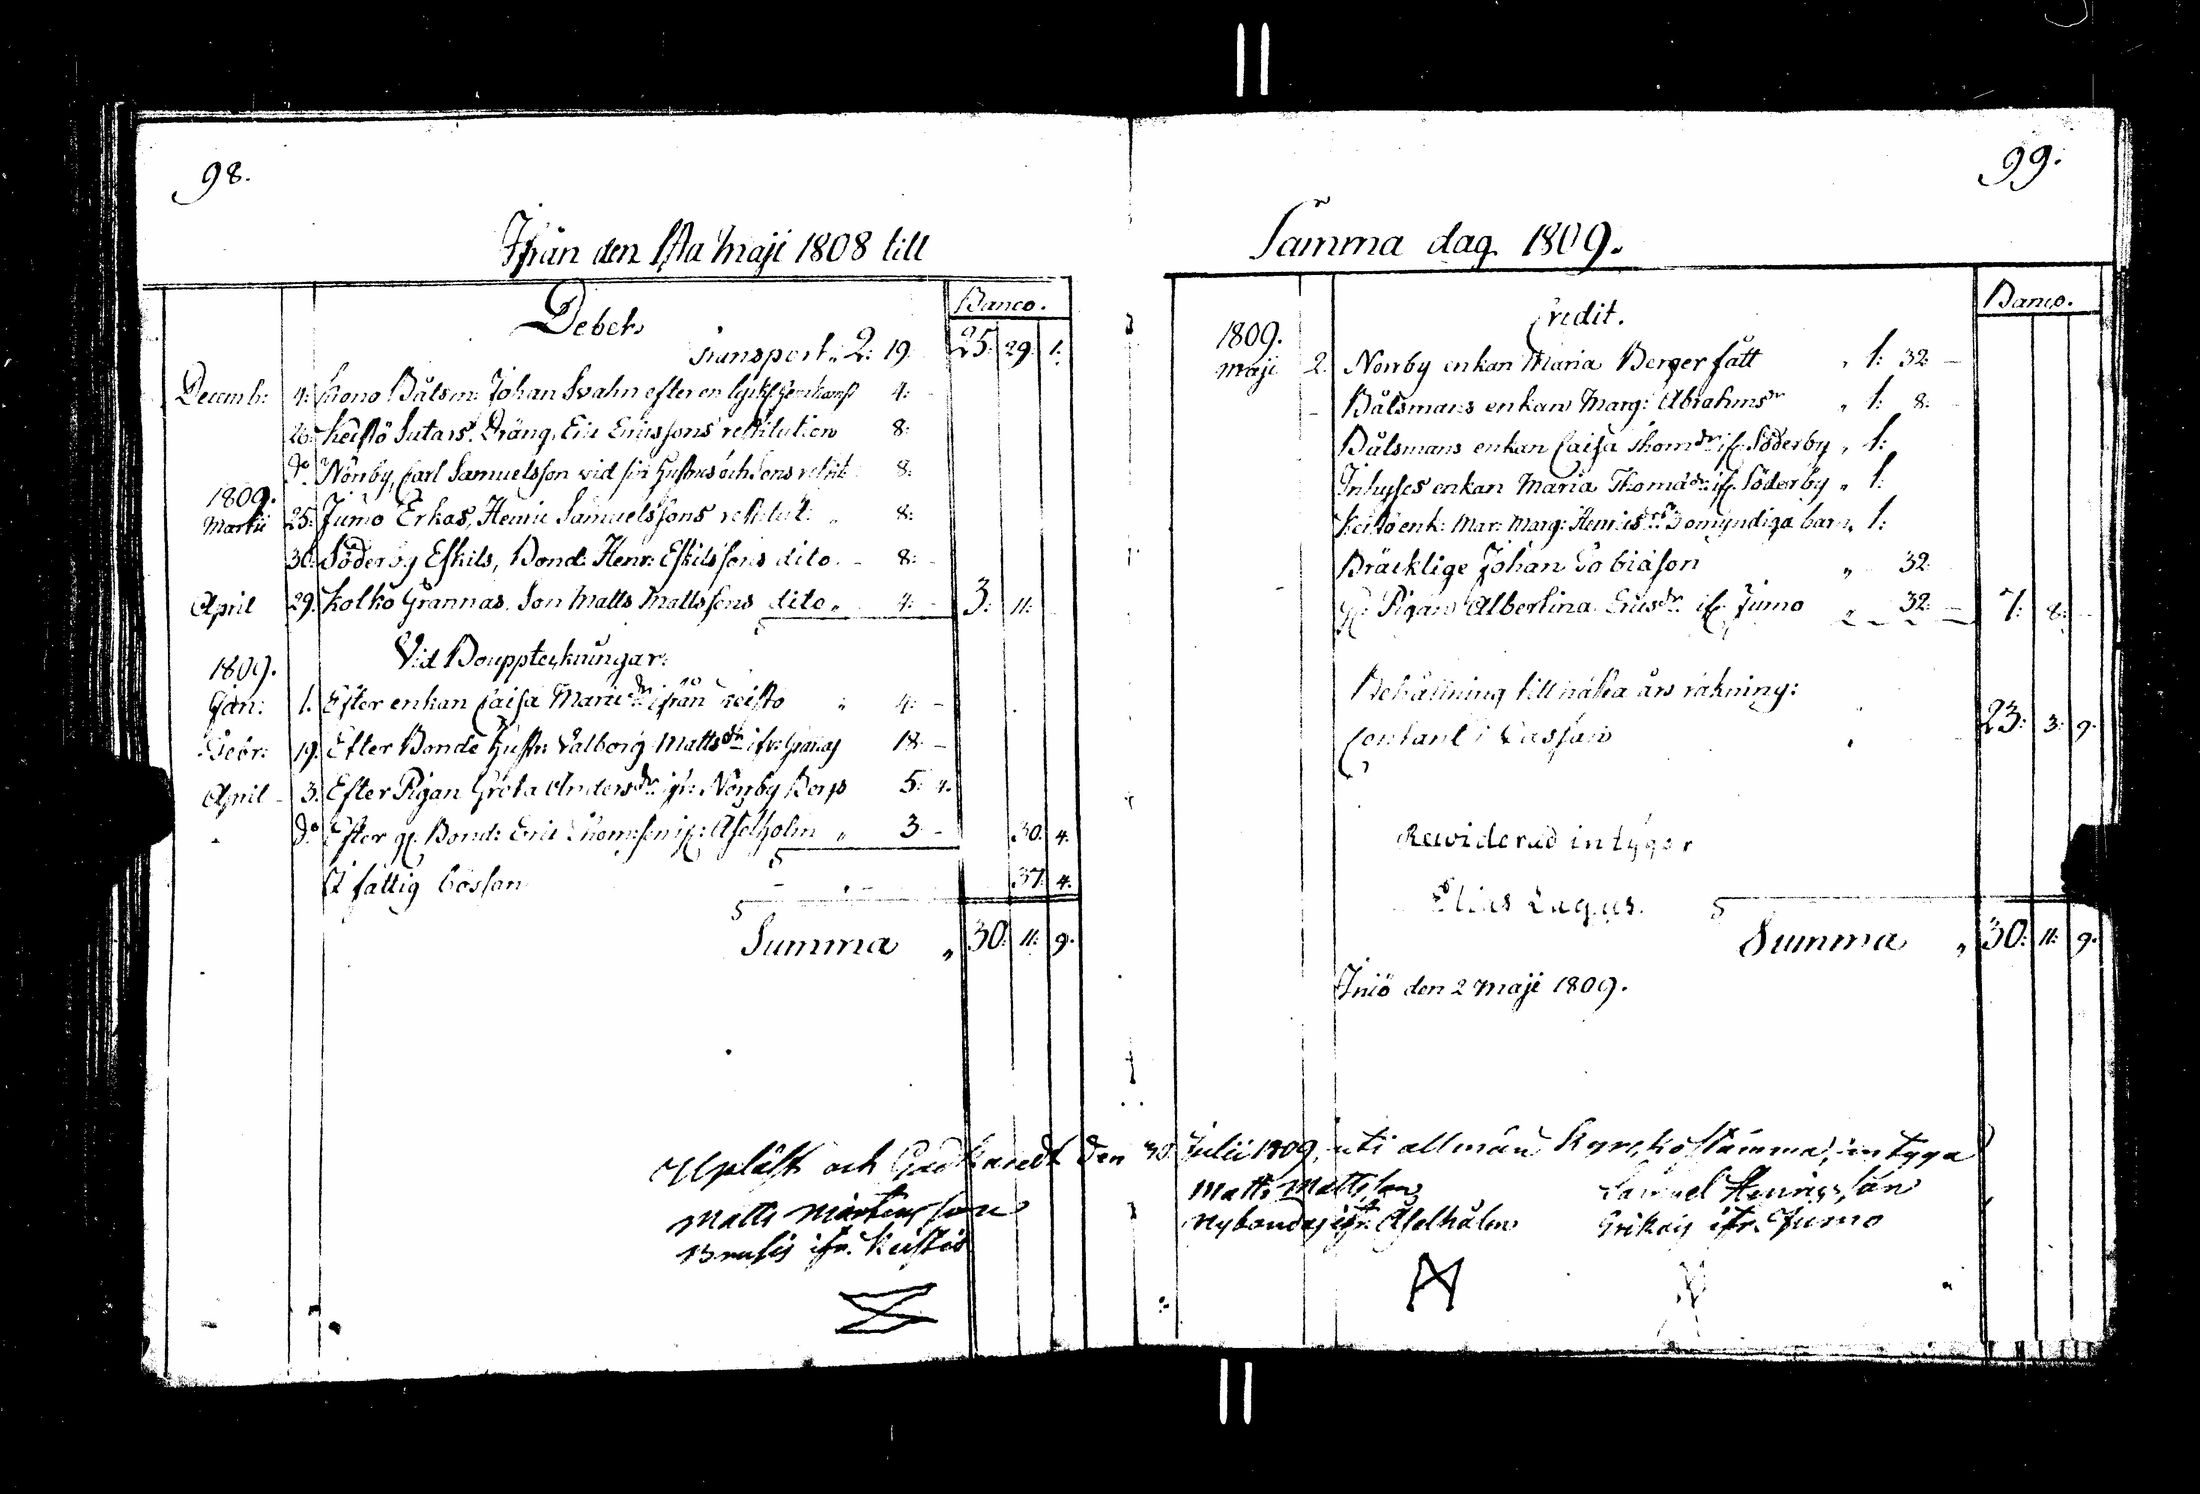 98.
Ifrån den 1sta Maji 1808 till
Debet.
Banco.
Transport „ 2: 19. 25: 29: 1:
Decemb: 4: Kono Båtsm: Johan Svahn efter en 4: –
26: Keistö Sutars Dräng, Eric Ericssons restitution 8:
do Norrby, Carl Samuelsson vid sin Hustrus och Sons restit: 8:
1809.
Martii 25: Jumo Erkas, Henric Samuelssons restitut: „ 8:
30: Söderby Eskils, Bond: Henr: Eskilssons dito. – 8: –
April 29. Kolko Grannas, Son Matts Mattssons dito „ 4: – 3: 11:
1809. Vid Bouppteckningar:
Jan: 1. Efter enkan Caisa Mariedr ifrån Keisto „ 4: –
19. Efter Bonde Hustr: Valborg Mattsdr ifr: 18: –
April – 3. Efter Pigan Greta Andersdr ifr: Norrby 5: 4.
do Efter gl. Bond: Eric Thomsson ifr: Aselholm „ 3 – 30. 4.
I fattig bössan 37. 4.
Summa „ 30: 11: 9.
99.
Samma dag 1809.
Credit.
Banco.
1809.
Maji 2. Norrby enkan Maria Berger fått „ 1: 32: –
– Båtsmans enkan Marg: Abrahmsdr „ 1: 8: –
Båtsmans enkan Caisa Thomdr ifr. Söderby „ 1:
Inhyses enkan Maria Thomædr ifr. Söderby „ 1:
Keistö enk: Mar: Marg: Henricsdrs omyndiga barn „ 1:
Bräcklige Johan Tobiason „ 32:
gl. Pigan Albertina Ericsdr ifr. Jumo „ 32: – 7: 8: –
Behållning till nästa års räkning:
Contant i Cassan 23: 3: 9.
Rewiderad intygar
Elias Lagus.
Summa „ 30: 11: 9.
Iniö den 2 Maji 1809.
Upläst och Godkändt den 30 Julii 1809, uti allmän Kyrckostämma, intyga
Matts Mårtensson Matts Mattsson Samuel Henricsson
ifr. Keistiö Nybondas ifr. Aselholm Erikas ifr. Jumo